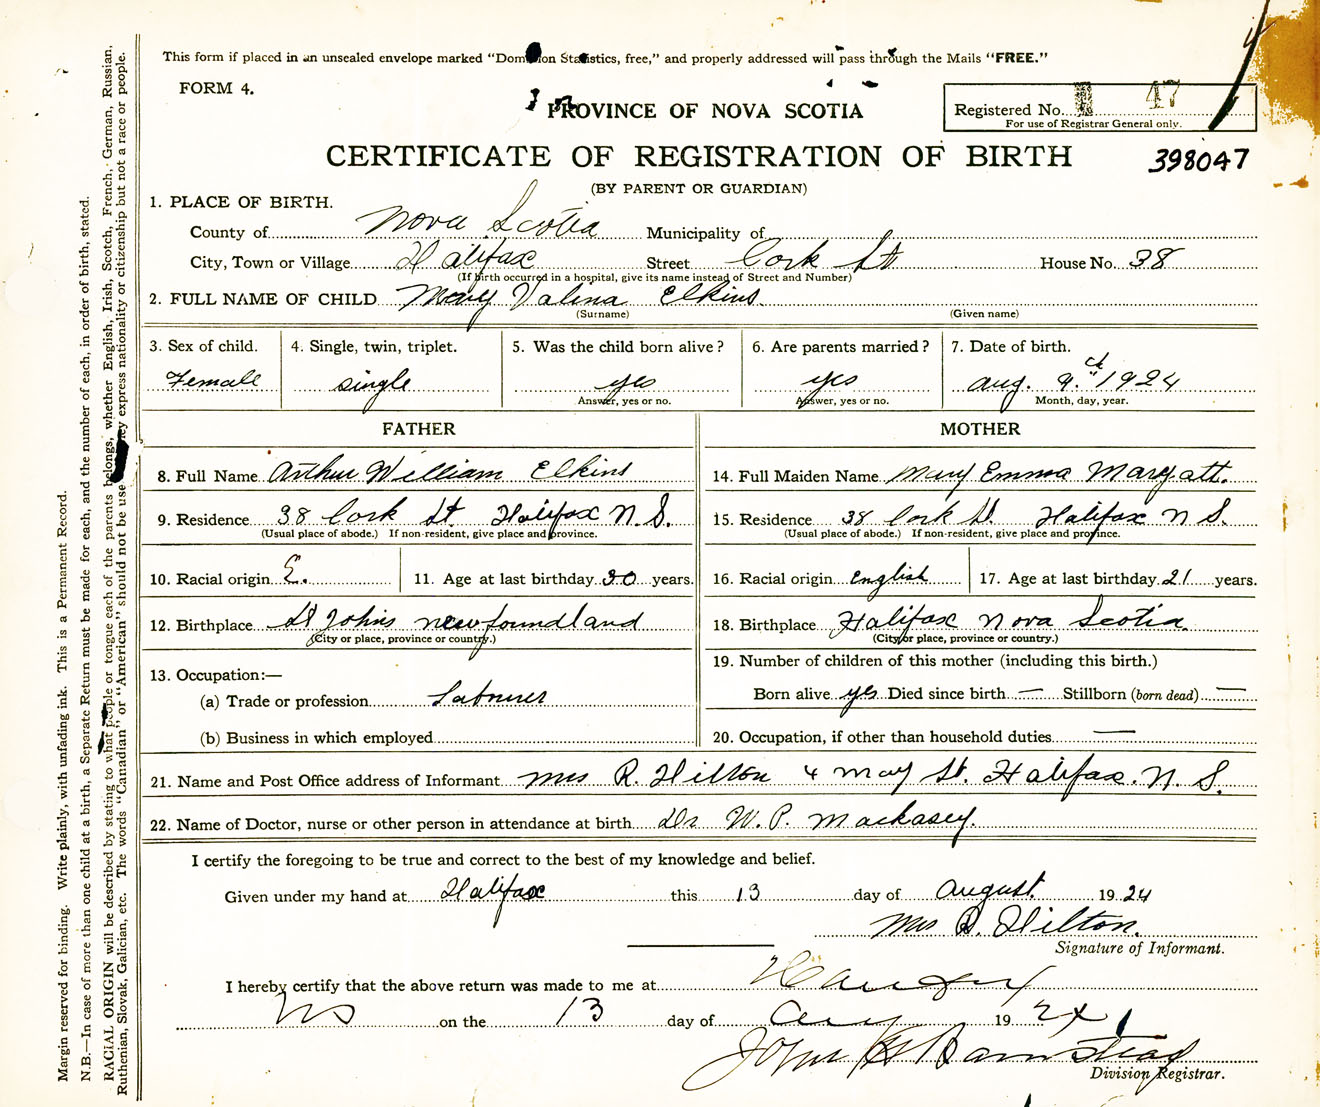 This form if placed in an unsealed envelope marked "Dominion Statistics, free," and properly addressed will pass through the Mails "FREE."
FORM 4.
PROVINCE OF NOVA SCOTIA
Registered No. 47
For use of Registrar General only.
CERTIFICATE OF REGISTRATION OF BIRTH
398047
(BY PARENT OR GUARDIAN)
1. PLACE OF BIRTH.
County of Nova Scotia Municipality of
City, Town or Village Halifax Street Cork St House No. 38
(If birth occurred in a hospital, give its name instead of Street and Number)
2. FULL NAME OF CHILD Mary Valina Elkins.
(Surname) (Given name)
3. Sex of child. 4. Single, twin, triplet. 5. Was the child born alive? 6. Are parents married? 7. Date of birth.
Female single yes yes Aug. 9. 1924
Answer, yes or no. Answer, yes or no. Month, day, year.
FATHER MOTHER
8. Full Name Arthur William Elkins 14. Full Maiden Name Mary Emma Maryatt.
9. Residence 38 Cork St. Halifax N.S. 15. Residence 38 Cork St. Halifax N S.
(Usual place of abode.) If non-resident, give place and province. (Usual place of abode.) If non-resident, give place and province.
10. Racial origin E. 11. Age at last birthday 30 years. 16. Racial origin English 17. Age at last birthday 21 years.
12. Birthplace St Johns newfoundland 18. Birthplace Halifax Nova Scotia.
(City or place, province or country.) (City or place, province or country.)
13. Occupation:— 19. Number of children of this mother (including this birth.)
(a) Trade or profession Labourer Born alive yes Died since birth — Stillborn (born dead) —
(b) Business in which employed 20. Occupation, if other than household duties —
21. Name and Post Office address of Informant Mrs R. Hilton 4 May St. Halifax. N. S.
22. Name of Doctor, nurse or other person in attendance at birth Dr W. P. Mackasey.
I certify the foregoing to be true and correct to the best of my knowledge and belief.
Given under my hand at Halifax this 13 day of August. 1924
Mrs R. Hilton.
Signature of Informant.
I hereby certify that the above return was made to me at Halifax
NS on the 13 day of Aug 1924
John H Barnstead
Division Registrar.
Margin reserved for binding. Write plainly, with unfading ink. This is a Permanent Record.
N.B.—In case of more than one child at a birth, a Separate Return must be made for each, and the number of each, in order of birth, stated.
RACIAL ORIGIN will be described by stating to what people or tongue each of the parents belongs, whether English, Irish, Scotch, French, German, Russian,
Ruthenian, Slovak, Galician, etc. The words "Canadian" or "American" should not be used they express nationality or citizenship but not a race or people.